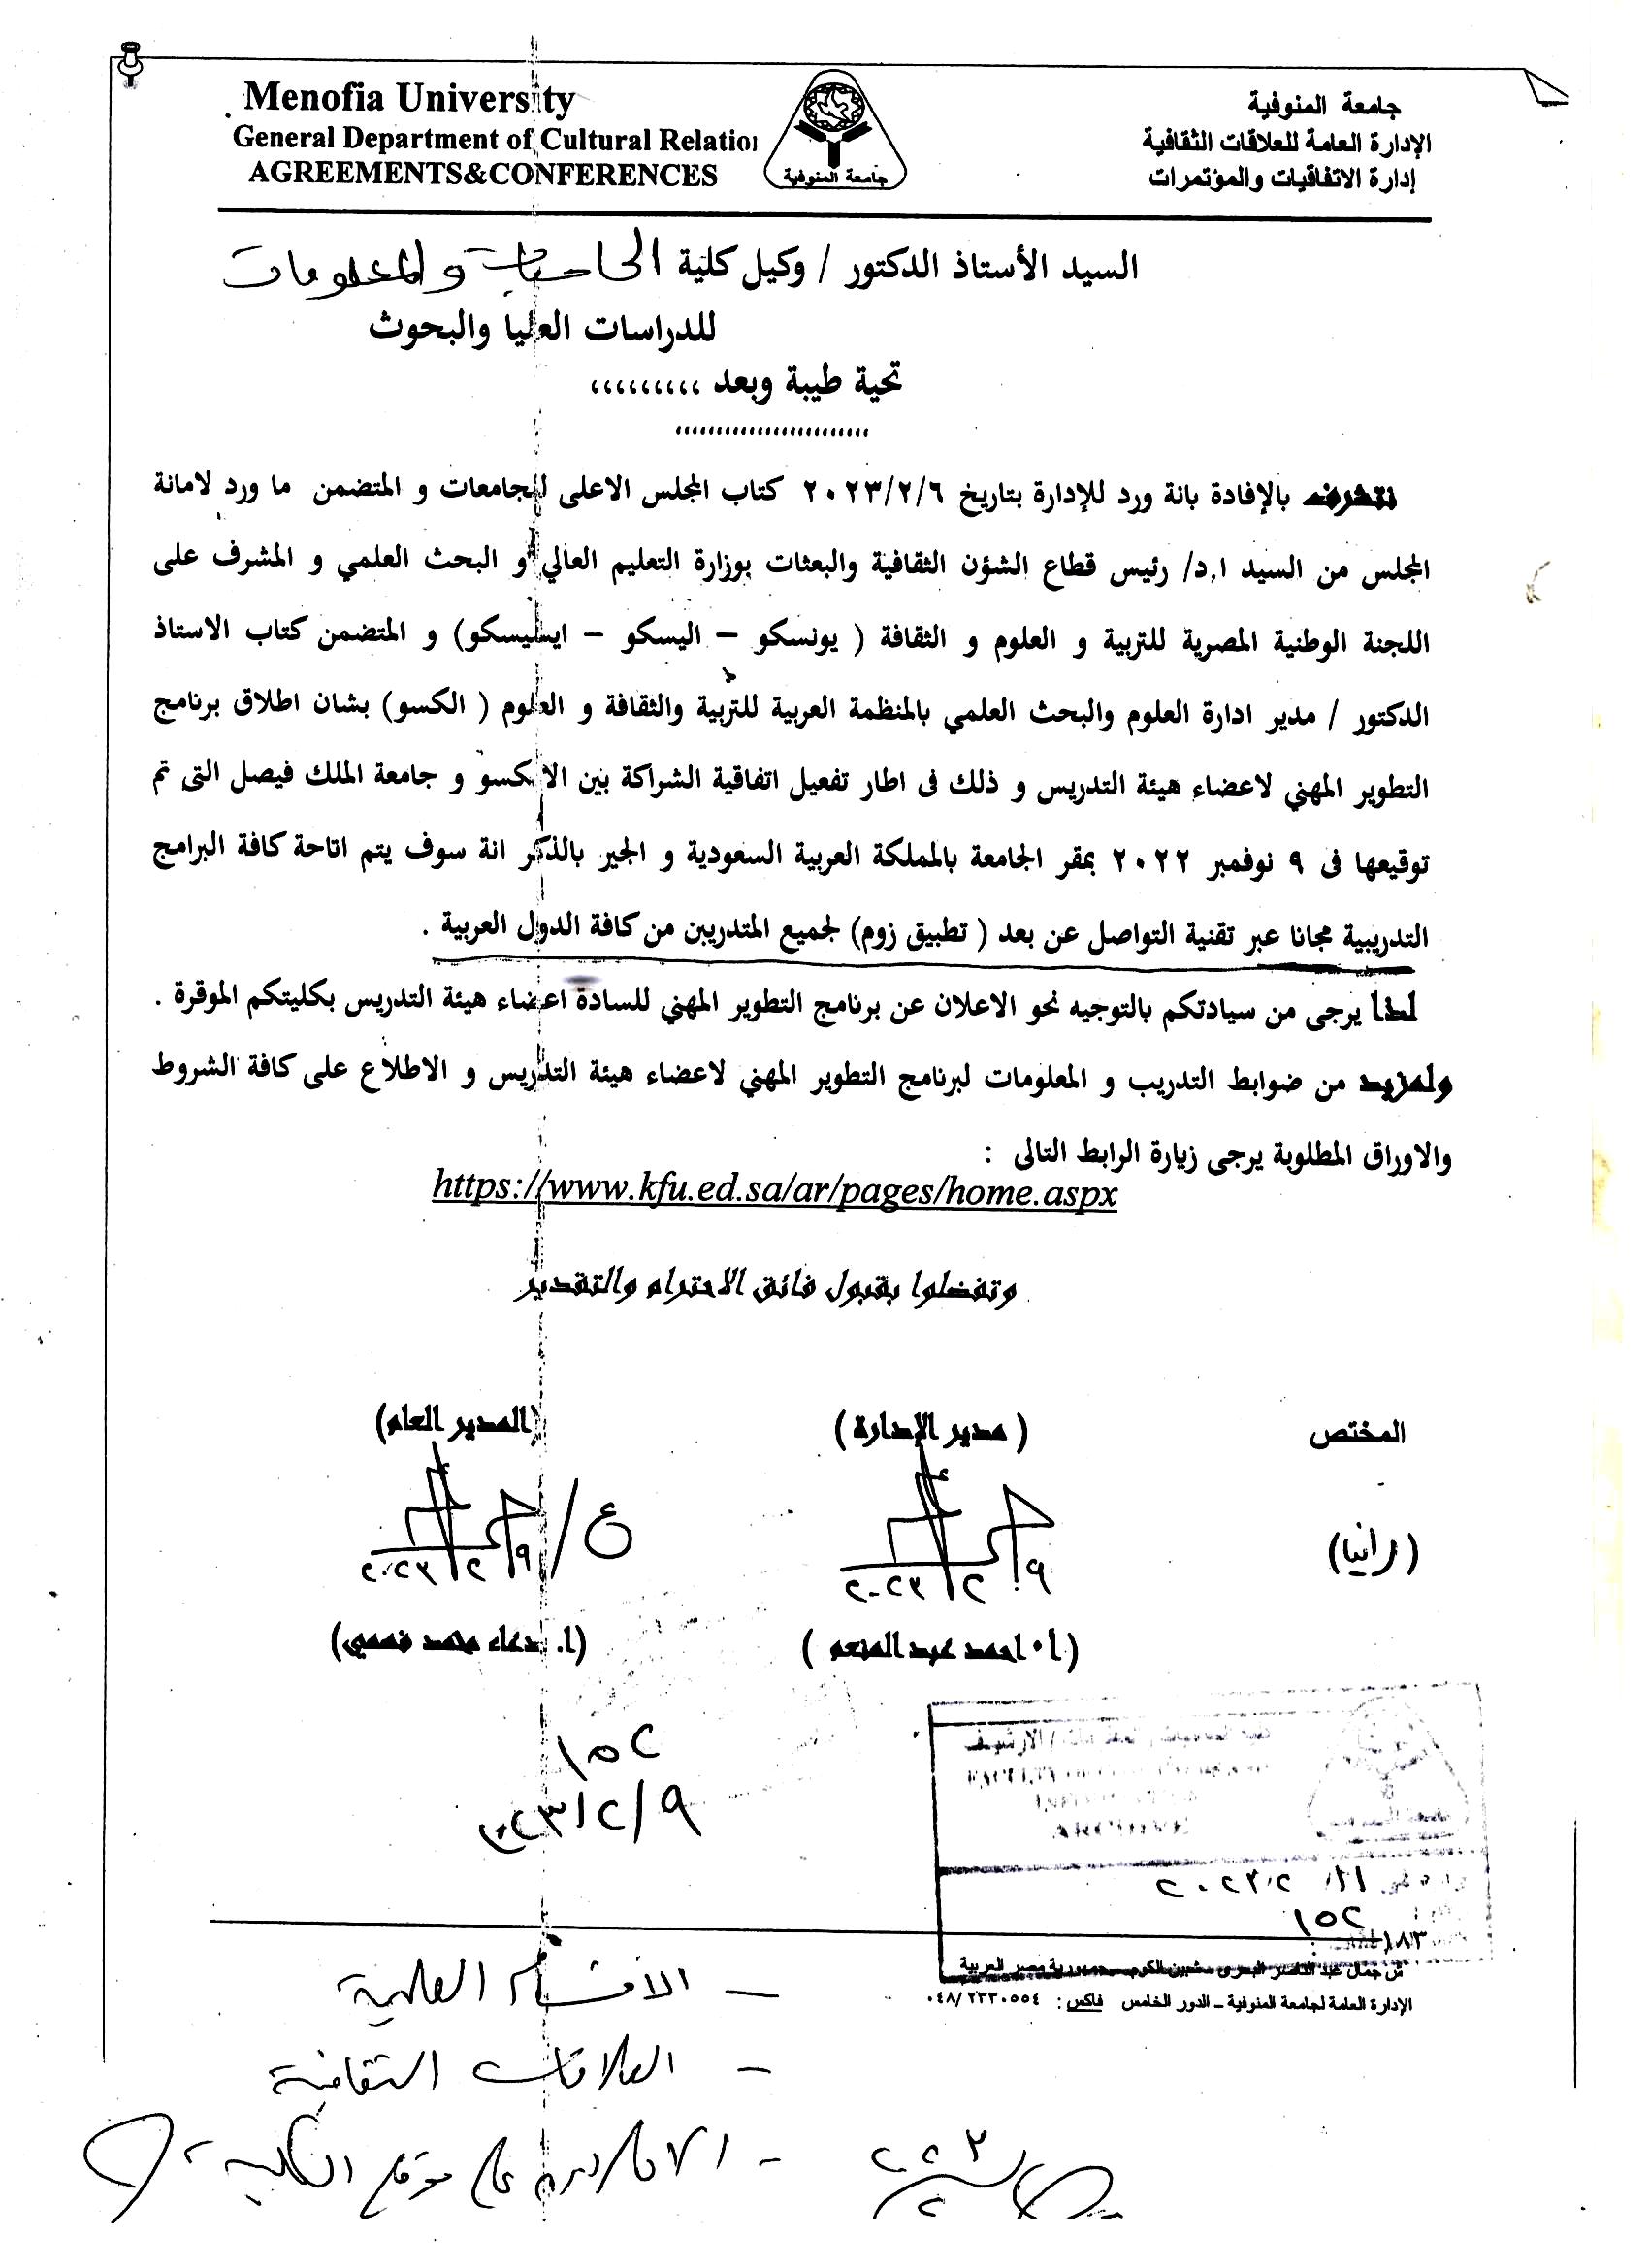 Menofia University
General Department of Cultural Relation
AGREEMENTS&CONFERENCES
جامعة المنوفية
جامعة المنوفية
الإدارة العامة للعلاقات الثقافية
إدارة الاتفاقيات والمؤتمرات
السيد الأستاذ الدكتور / وكيل كلية الحاسبات والمعلومات
للدراسات العليا والبحوث
تحية طيبة وبعد ،،،،،،،،،
،،،،،،،،،،،،،،،،،،،،،،،
نتشرف بالإفادة بانة ورد للإدارة بتاريخ ٢٠٢٣/٢/٦ كتاب المجلس الاعلى للجامعات و المتضمن ما ورد لامانة
المجلس من السيد ا.د/ رئيس قطاع الشؤن الثقافية والبعثات بوزارة التعليم العالي و البحث العلمي و المشرف على
اللجنة الوطنية المصرية للتربية و العلوم و الثقافة ( يونسكو – اليسكو – ايسليسكو) و المتضمن كتاب الاستاذ
الدكتور / مدير ادارة العلوم والبحث العلمي بالمنظمة العربية للتربية والثقافة و العلوم ( الكسو) بشان اطلاق برنامج
التطوير المهني لاعضاء هيئة التدريس و ذلك فى اطار تفعيل اتفاقية الشراكة بين الالكسو و جامعة الملك فيصل التى تم
توقيعها فى ٩ نوفمبر ٢٠٢٢ بمقر الجامعة بالمملكة العربية السعودية و الجير بالذكر انة سوف يتم اتاحة كافة البرامج
التدريبية مجانا عبر تقنية التواصل عن بعد ( تطبيق زوم) لجميع المتدربين من كافة الدول العربية .
لذا يرجى من سيادتكم بالتوجيه نحو الاعلان عن برنامج التطوير المهني للسادة اعضاء هيئة التدريس بكليتكم الموقرة .
ولمزيد من ضوابط التدريب و المعلومات لبرنامج التطوير المهني لاعضاء هيئة التدريس و الاطلاع على كافة الشروط
والاوراق المطلوبة يرجى زيارة الرابط التالى :
https://www.kfu.ed.sa/ar/pages/home.aspx
وتفضلوا بقبول فائق الاحترام والتقدير
المختص
( مدير الإدارة )
(المدير العام)
(رانيا)
٢٠٢٣/٢/٩
ع/
٢٠٢٣/٢/٩
(أ٠ احمد عبد المنعم )
(ا. دعاء محمد فهمي)
١٥٢
٢٠٢٣/٢/٩
الارشيف
ARCHIVE
١٥٢
ش جمال عبد الناصر البحرى – شبين الكوم – جمهورية مصر العربية
الإدارة العامة لجامعة المنوفية – الدور الخامس فاكس : ٠٤٨/٢٣٣٠٥٥٤
– الأقسام العلمية
– العلاقات الثقافية
على موقع الكلية